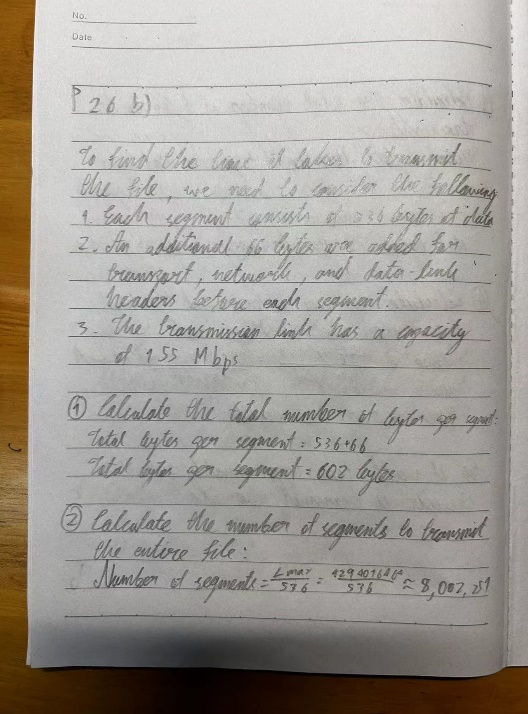 No.
Date
P 26 b)
To find the time it takes to transmit
the file, we need to consider the following
1. Each segment consists of 536 bytes of data
2. An additional 66 bytes are added for
transport, network, and data-link
headers before each segment.
3. The transmission link has a capacity
of 155 Mbps
① Calculate the total number of bytes per segment:
Total bytes per segment = 536+66
Total bytes per segment = 602 bytes
② Calculate the number of segments to transmit
the entire file:
Number of segments = L max / 536 = / 536 ≈ 8,